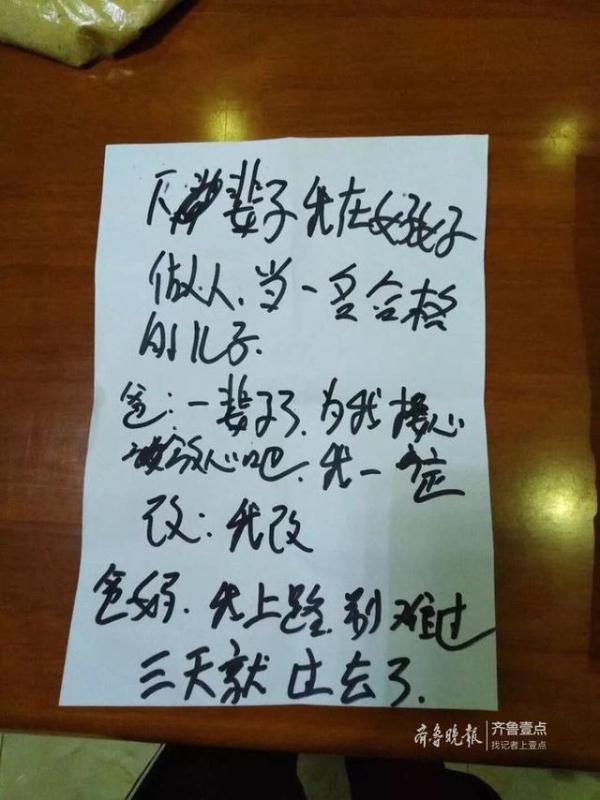 下半辈子我在好好
做人.当一名合格
的儿子.
爸:一辈子了.为我操心
放心吧.我一定
改:我改
爸妈.我上路.别难过
三天就过去了.
齐鲁晚报 齐鲁壹点
找记者上壹点